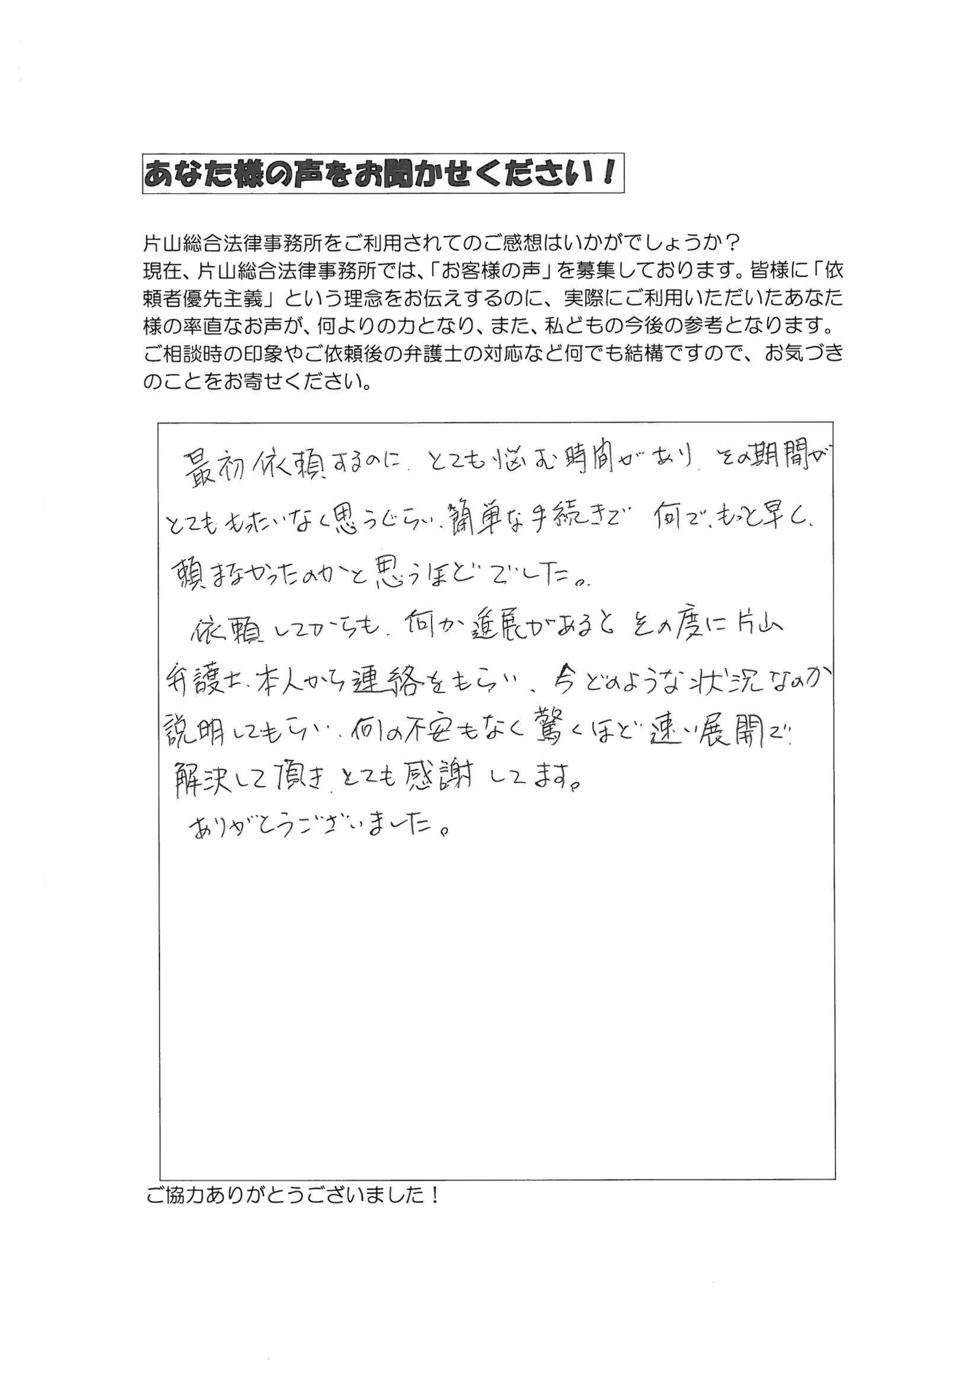 あなた様の声をお聞かせください！
片山総合法律事務所をご利用されてのご感想はいかがでしょうか？
現在、片山総合法律事務所では、「お客様の声」を募集しております。皆様に「依
頼者優先主義」という理念をお伝えするのに、実際にご利用いただいたあなた
様の率直なお声が、何よりの力となり、また、私どもの今後の参考となります。
ご相談時の印象やご依頼後の弁護士の対応など何でも結構ですので、お気づき
のことをお寄せください。
最初依頼するのに、とても悩む時間があり、その期間が
とてももったいなく思うぐらい、簡単な手続きで 何で、もっと早く、
頼まなかったのかと思うほどでした。
依頼してからも、何か進展があると その度に片山
弁護士、本人から連絡をもらい、今どのような状況なのか
説明してもらい、何の不安もなく驚くほど速い展開で
解決して頂き、とても感謝してます。
ありがとうございました。
ご協力ありがとうございました！